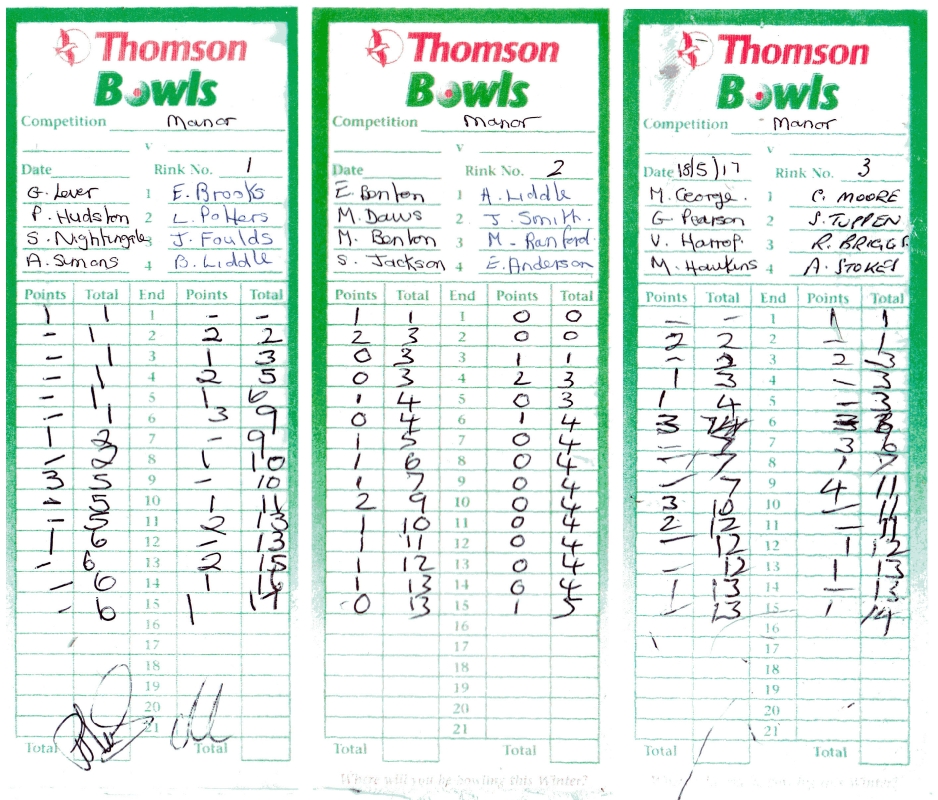 Thomson
Bowls
Competition Manor
v
Date Rink No. 1
G. Lever 1 E. Brooks
P. Hudston 2 L. Potters
S. Nightingale 3 J. Foulds
A. Simons 4 B. Liddle
Points Total End Points Total
1 1 1 - -
- 1 2 2 2
- 1 3 1 3
- 1 4 2 5
- 1 5 1 6
- 1 6 3 9
1 2 7 - 9
- 2 8 1 10
3 5 9 - 10
- 5 10 1 11
- 5 11 2 13
1 6 12 - 13
- 6 13 2 15
- 6 14 1 16
- 6 15 1 17
16
17
18
19
20
21
Total Total
Thomson
Bowls
Competition Manor
v
Date Rink No. 2
E. Benton 1 A. Liddle
M. Daws 2 J. Smith.
M. Benton 3 M. Ranford.
S. Jackson 4 E. Anderson
Points Total End Points Total
1 1 1 0 0
2 3 2 0 0
0 3 3 1 1
0 3 4 2 3
1 4 5 0 3
0 4 6 1 4
1 5 7 0 4
1 6 8 0 4
1 7 9 0 4
2 9 10 0 4
1 10 11 0 4
1 11 12 0 4
1 12 13 0 4
1 13 14 0 4
0 13 15 1 5
16
17
18
19
20
21
Total Total
Where will you be bowling this Winter?
Thomson
Bowls
Competition Manor
v
Date 18/5/17 Rink No. 3
M. George. 1 C. MOORE
G Pearson 2 S. TUPPEN
V. Harrop. 3 R. BRIGGS
M. Hawkins 4 A. STOKES
Points Total End Points Total
- - 1 1 1
2 2 2 - 1
- 2 3 2 3
1 3 4 - 3
1 4 5 - 3
3 6
- 7 7 3 6
- 7 8 1 7
- 7 9 4 11
3 10 10 - 11
2 12 11 - 11
- 12 12 1 12
- 12 13 1 13
1 13 14 - 13
- 13 15 1 14
16
17
18
19
20
21
Total Total